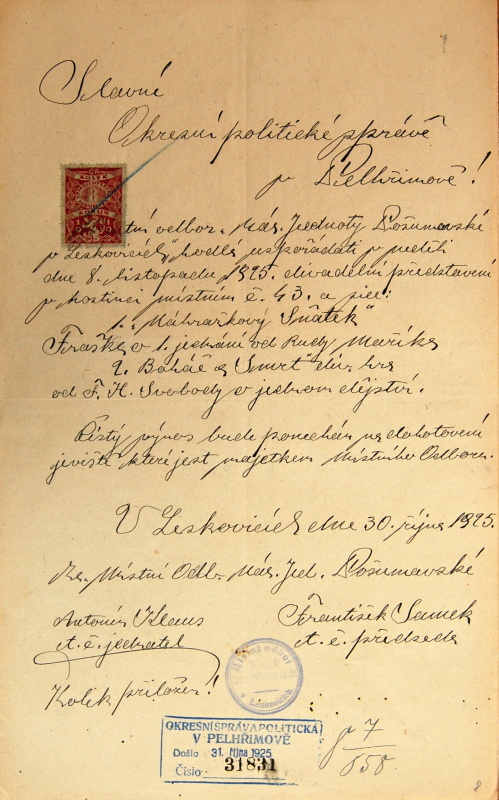 Slavné
Okresní politické správě
v Pelhřimově!
tní odbor „Nár. Jednoty Pošumavské
v Leskovicích“ hodlá uspořádati v neděli
dne 8. listopadu 1925. divadelní představení
v hostinci místním č. 43. a sice:
1. „Náhražkový Sňatek“
Fraška o 1. jednání od Rudy Maříka
2. Boháč a Smrt“ div. hra
od F. X. Svobody o jednom dějství.
Čistý výnos bude ponechán na dohotovení
jeviště které jest majetkem Místního Odboru.
V Leskovicích dne 30. října 1925.
Místní Odb. Nár. Jed. Pošumavské
Antonín Klaus
t. č. jednatel
František Samek
t. č. předseda
Kolek přiložen!
Místní odbor
v Leskovicích
OKRESNÍ SPRÁVA POLITICKÁ
V PELHŘIMOVĚ
Došlo 31. října 1925
Číslo: 31831
7
558
8